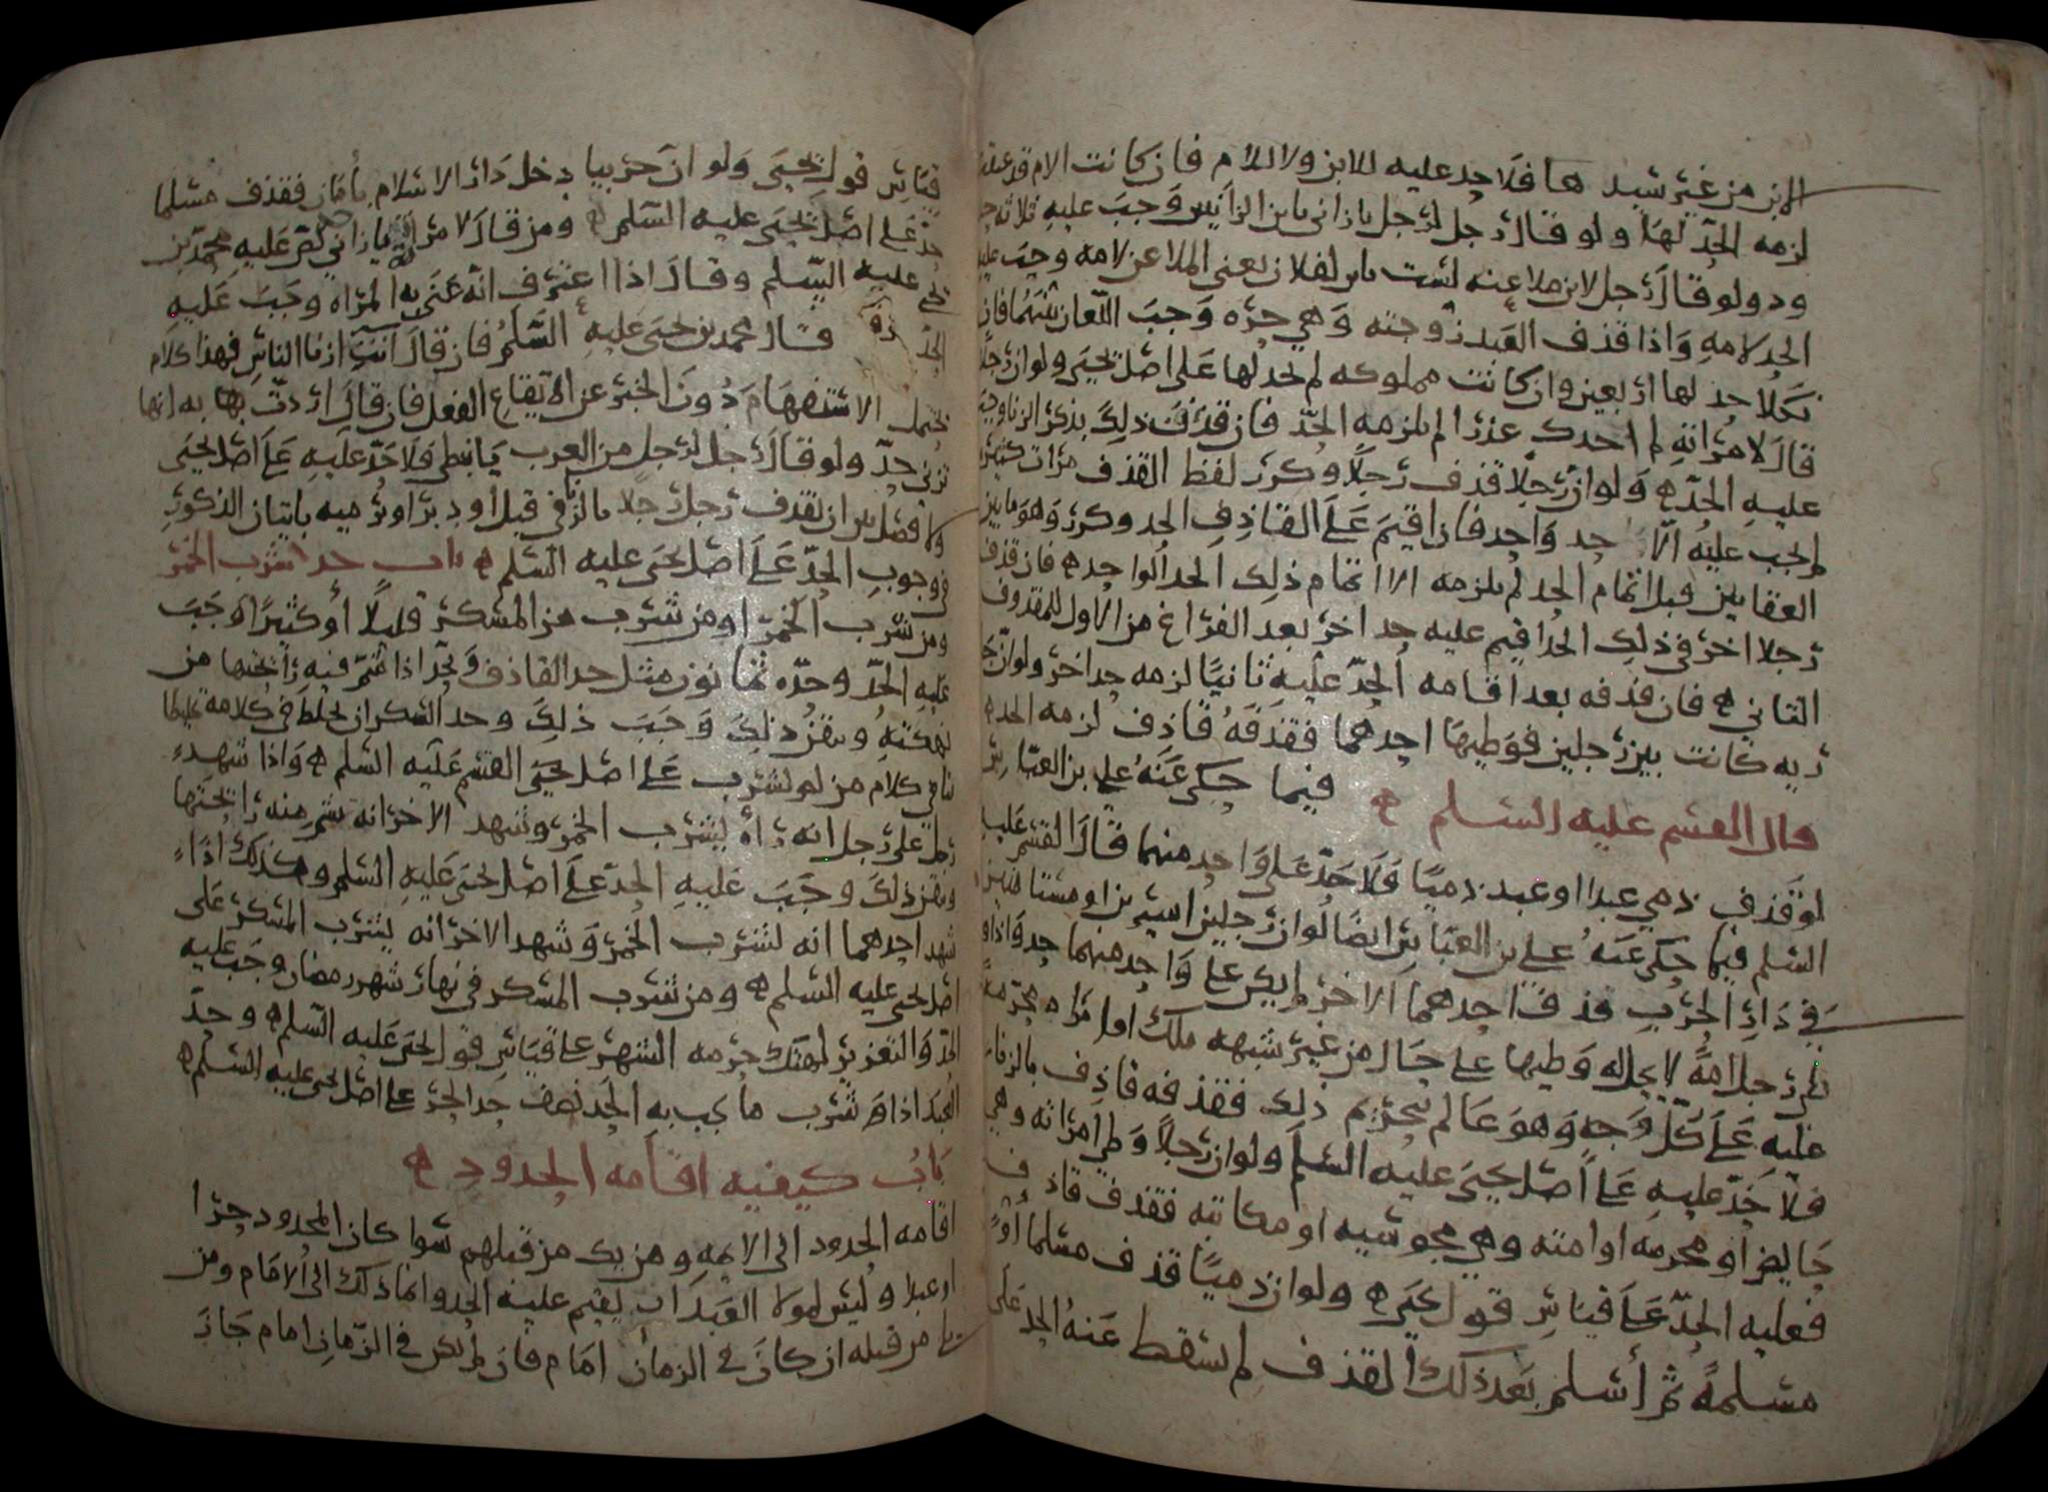 الابن من غير سيدها فلا حد عليه للابن ولا للام فان كانت الام قد عتقت
لزمه الحد لها ولو قال رجل لرجل يا زاني يا بن الزانيين وجب عليه ثلاثه
ود ولو قال رجل لابن ملاعنه لست بابن لفلان يعني الملاعن لامه وجب عليه
الحد لامه واذا قذف العبد زوجته وهي حره وجب اللعان بينهما فان
نكل حد لها اربعين وان كانت مملوكه لم يحد لها على اصل يحيى ولو ان رجلا
قال لامراته لم اجدك عذرا لم يلزمه الحد فان قذف ذلك بذكر الزنا وجب
عليه الحد ولو ان رجلا قذف رجلا وكرر لفظ القذف مرات كثيره
لم يجب عليه الا حد واحد فان اقيم على القاذف الحد وكرر وهو ما بين
العقابين قبل اتمام الحد لم يلزمه الا اتمام ذلك الحد الواحد فان قذف
رجلا اخر في ذلك الحد اقيم عليه حد اخر بعد الفراغ من الاول للمقذوف
الثاني فان قذفه بعد اقامه الحد عليه ثانيا لزمه حد اخر ولو ان
كانت بين رجلين فوطيها احدهما فقذفه قاذف لزمه الحد
قال القسم عليه السلم فيما حكى عنه علي بن العباس
لو قذف ذمي عبدا او عبد ذميا فلا حد على واحد منهما قال القسم عليه
السلم فيما حكى عنه علي بن العباس ايضا لو ان رجلين اسيرين او مستامنين
في دار الحرب قذف احدهما الاخر لم يكن على واحد منهما حد واذا و
طي رجل امة لا يحل له وطيها على حال من غير شبهه ملك او امراه محرمة
عليه على كل وجه وهو عالم بتحريم ذلك فقذفه قاذف بالزنا
فلا حد عليه على اصل يحيى عليه السلم ولو ان رجلا وطي امراته وهي
حايض او محرمه او امته وهي مجوسيه او مكاتبه فقذف قاذف
فعليه الحد على قياس قول يحيى ولو ان ذميا قذف مسلما او
مسلمة ثم اسلم بعد ذلك القذف لم يسقط عنه الحد على
قياس قول يحيى ولو ان حربيا دخل دار الاسلام بامان فقذف مسلما
حد على اصل يحيى عليه السلم ومن قال لامراته يا زاني محمد بن
يحيى عليه السلم وقال اذا اعترف انه عنى به المراه وجب عليه
الحد قال محمد بن يحيى عليه السلم فان قال انت ازنا الناس فهذا كلام
يحتمل الاستفهام دون الخبر عن الايقاع الفعل فان قال اردت بها به انها
تزني حد ولو قال رجل لرجل من العرب يا نبطي فلا حد عليه على اصل يحيى
ولا فصل بين ان يقذف رجل رجلا بالزنى في قبل او دبر او يرميه باتيان الذكور
في وجوب الحد على اصل يحيى عليه السلم باب حد شرب الخمر
ومن شرب الخمر او من شرب من المسكر قليلا او كثيرا وجب
عليه الحد وحده ثمانون مثل حد القاذف ويحد اذا شم فيه رايحتها من
نكهته وتقرر ذلك وجب ذلك وحد السكران يخلط في كلامه تخليطا
ينافي كلام من لم يشرب على اصل يحيى القسم عليه السلم واذا شهد
رجل على رجل انه راه يشرب الخمر وشهد الاخر انه شم منه رايحتها
وتقرر ذلك وجب عليه الحد على اصل يحيى عليه السلم وكذلك اذا
شهد احدهما انه يشرب الخمر وشهد الاخر انه يشرب المسكر على
اصل يحيى عليه السلم ومن شرب المسكر في نهار شهر رمضان وجب عليه
الحد والتعزير لهتك حرمه الشهر على قياس قول يحيى عليه السلم وحد
العبد اذا شرب ما يجب به الحد نصف حد الحر على اصل يحيى عليه السلم
باب كيفيه اقامه الحدود
اقامه الحدود الى الايمه ومن يك من قبلهم سوا كان المحدود حرا
او عبدا وليس لمولا العبد ان يقيم عليه الحد وانما ذلك الى الامام ومن
من قبله ان كان في الزمان امام فان لم يكن في الزمان امام جاز